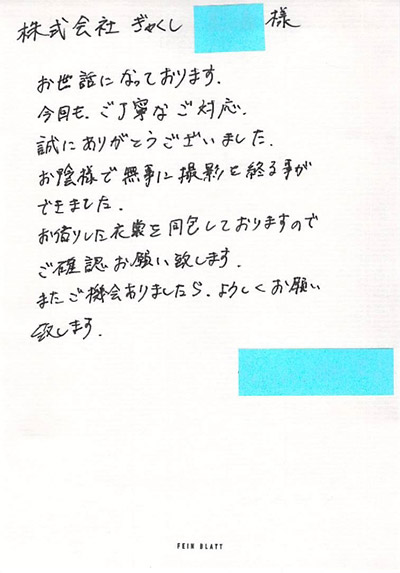 株式会社 ぎゃくし 様
お世話になっております.
今回も、ご丁寧なご対応.
誠にありがとうございました.
お陰様で無事に撮影を終る事が
できました.
お借りした衣裳を同包しておりますので
ご確認お願い致します.
またご機会ありましたら、よろしくお願い
致します.
FEIN BLATT